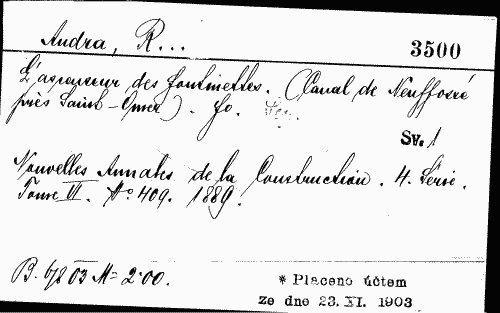 Andra, R...
3500
L'ascenseur des fontinettes. (Canal de Neuffossé
près Saint-Omer). fo.
Sv. 1
Nouvelles Annales de la Construction. 4. Série.
Tome VI. No 409. 1889.
B. 6803 M= 2·00.
* Placeno účtem
ze dne 23. XI. 1903